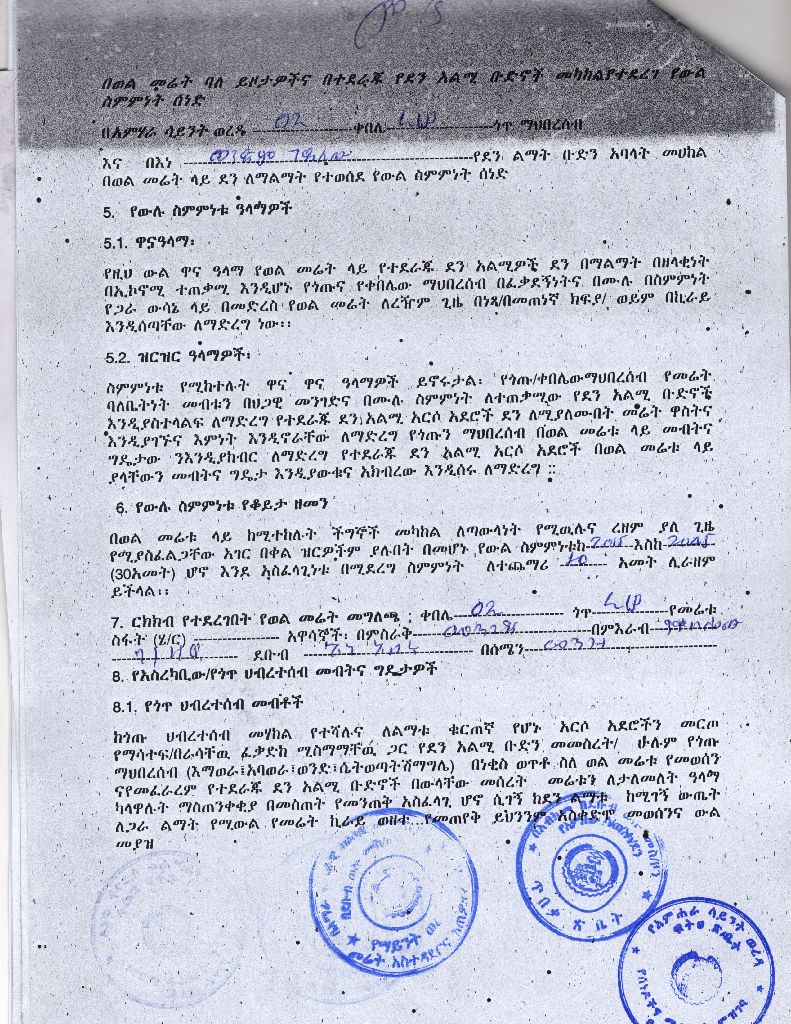 በወል መሬት ባለ ይዞታዎችና በተደራጁ የደን አልሚ ቡድኖች መካከልየተደረገ የውል
ስምምነት ሰነድ
በአምሃራ ሳይንት ወረዳ ---------- 02 ----------ቀበሌ ----------ጎጥ ማህበረሰብ
እና በእነ ----------------------የደን ልማት ቡድን አባላት መሀከል
በወል መሬት ላይ ደን ለማልማት የተወሰደ የውል ስምምነት ሰነድ
5. የውሉ ስምምነቱ ዓላማዎች
5.1. ዋናዓላማ፡
የዚህ ውል ዋና ዓላማ የወል መሬት ላይ የተደራጁ ደን አልሚዎች ደን በማልማት በዘላቂነት
በኢኮኖሚ ተጠቃሚ እንዲሆኑ የጎጡና የቀበሌው ማህበረሰብ በፈቃደኝነትና በሙሉ በስምምነት
የጋራ ውሳኔ ላይ በመድረስ የወል መሬት ለረዥም ጊዜ በነጻ/በመጠነኛ ክፍያ/ ወይም በኪራይ
እንዲሰጣቸው ለማድረግ ነው፡፡
5.2. ዝርዝር ዓላማዎች፡
ስምምነቱ የሚከተሉት ዋና ዋና ዓላማዎች ይኖሩታል፡ የጎጡ/ቀበሌውማህበረሰብ የመሬት
ባለቤትነት መብቱን በህጋዊ መንገድና በሙሉ ስምምነት ለተጠቃሚው የደን አልሚ ቡድኖች
እንዲያስተላልፍ ለማድረግ የተደራጁ ደን አልሚ አርሶ አደሮች ደን ለሚያለሙበት መሬት ዋስትና
እንዲያገኙና እምነት እንዲኖራቸው ለማድረግ የጎጡን ማህበረሰብ በወል መሬቱ ላይ መብትና
ግዴታው ንእንዲያከብር ለማድረግ የተደራጁ ደን አልሚ አርሶ አደሮች በወል መሬቱ ላይ
ያላቸውን መብትና ግዴታ እንዲያውቁና አክብረው እንዲሰሩ ለማድረግ ፡፡
6. የውሉ ስምምነቱ የቆይታ ዘመን
በወል መሬቱ ላይ ከሚተከሉት ችግኞች መካከል ለጣውላነት የሚዉሉና ረዘም ያለ ጊዜ
የሚያስፈልጋቸው አገር በቀል ዝርዎችም ያሉበት በመሆኑ የውል ስምምነቱከ-2015-እስከ-2045
(30አመት) ሆኖ እንደ አስፈላጊነቱ በሚደረግ ስምምነት ለተጨማሪ --10-- አመት ሊራዘም
ይችላል፡፡
7. ርክክብ የተደረገበት የወል መሬት መግለጫ ; ቀበሌ---02----------- ጎጥ-----------የመሬቱ
ስፋት (ሄ/ር) --------------- አዋሳኞች፡ በምስራቅ---መንገድ-----------በምእራብ----------
---------------- ደቡብ ------------------------ በሰሜን---መንገድ-----------------
8. የአስረካቢው/የጎጥ ህብረተሰብ መብትና ግዴታዎች
8.1. የጎጥ ህብረተሰብ መብቶች
ከጎጡ ህብረተሰብ መሃከል የተሻሉና ለልማቱ ቁርጠኛ የሆኑ አርሶ አደሮችን መርጦ
የማሳተፍ/በራሳቸዉ ፈቃድከ ሚስማማቸዉ ጋር የደን አልሚ ቡድን መመስረት/ ሁሉም የጎጡ
ማህበረሰብ (እማወራ፣አባወራ፣ወንድ፣ሴትወጣትሽማግሌ) በነቂስ ወጥቶ ስለ ወል መሬቱ የመወሰን
ናየመፈራረም የተደራጁ የደን አልሚ ቡድኖች በውላቸው መሰረት መሬቱን ለታለመለት ዓላማ
ካላዋሉት ማስጠንቀቂያ በመስጠት የመንጠቅ አስፈላጊ ሆኖ ሲገኝ ከደን ልማቱ ከሚገኝ ውጤት
ለጋራ ልማት የሚውል የመሬት ኪራይ ወዘተ የመጠየቅ ይህንንም አስቀድሞ መወሰንና ውል
መያዝ
የማይንት ወረ
መሬት አስተዳደርና አጠቃ
ጥበቃ ጽ ቤት
የአምሐራ ሳይንት ወረዳ
ፍትህ ጽ/ቤት